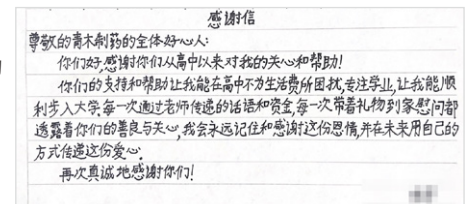 感谢信
尊敬的青木制药的全体好心人:
你们好,感谢你们从高中以来对我的关心和帮助!
你们的支持和帮助让我能在高中不为生活费所困扰,专注学业,让我能顺
利步入大学,每一次通过老师传递的话语和资金,每一次带着礼物到家慰问都
透露着你们的善良与关心,我会永远记住和感谢这份恩情,并在未来用自己的
方式传递这份爱心.
再次真诚地感谢你们!